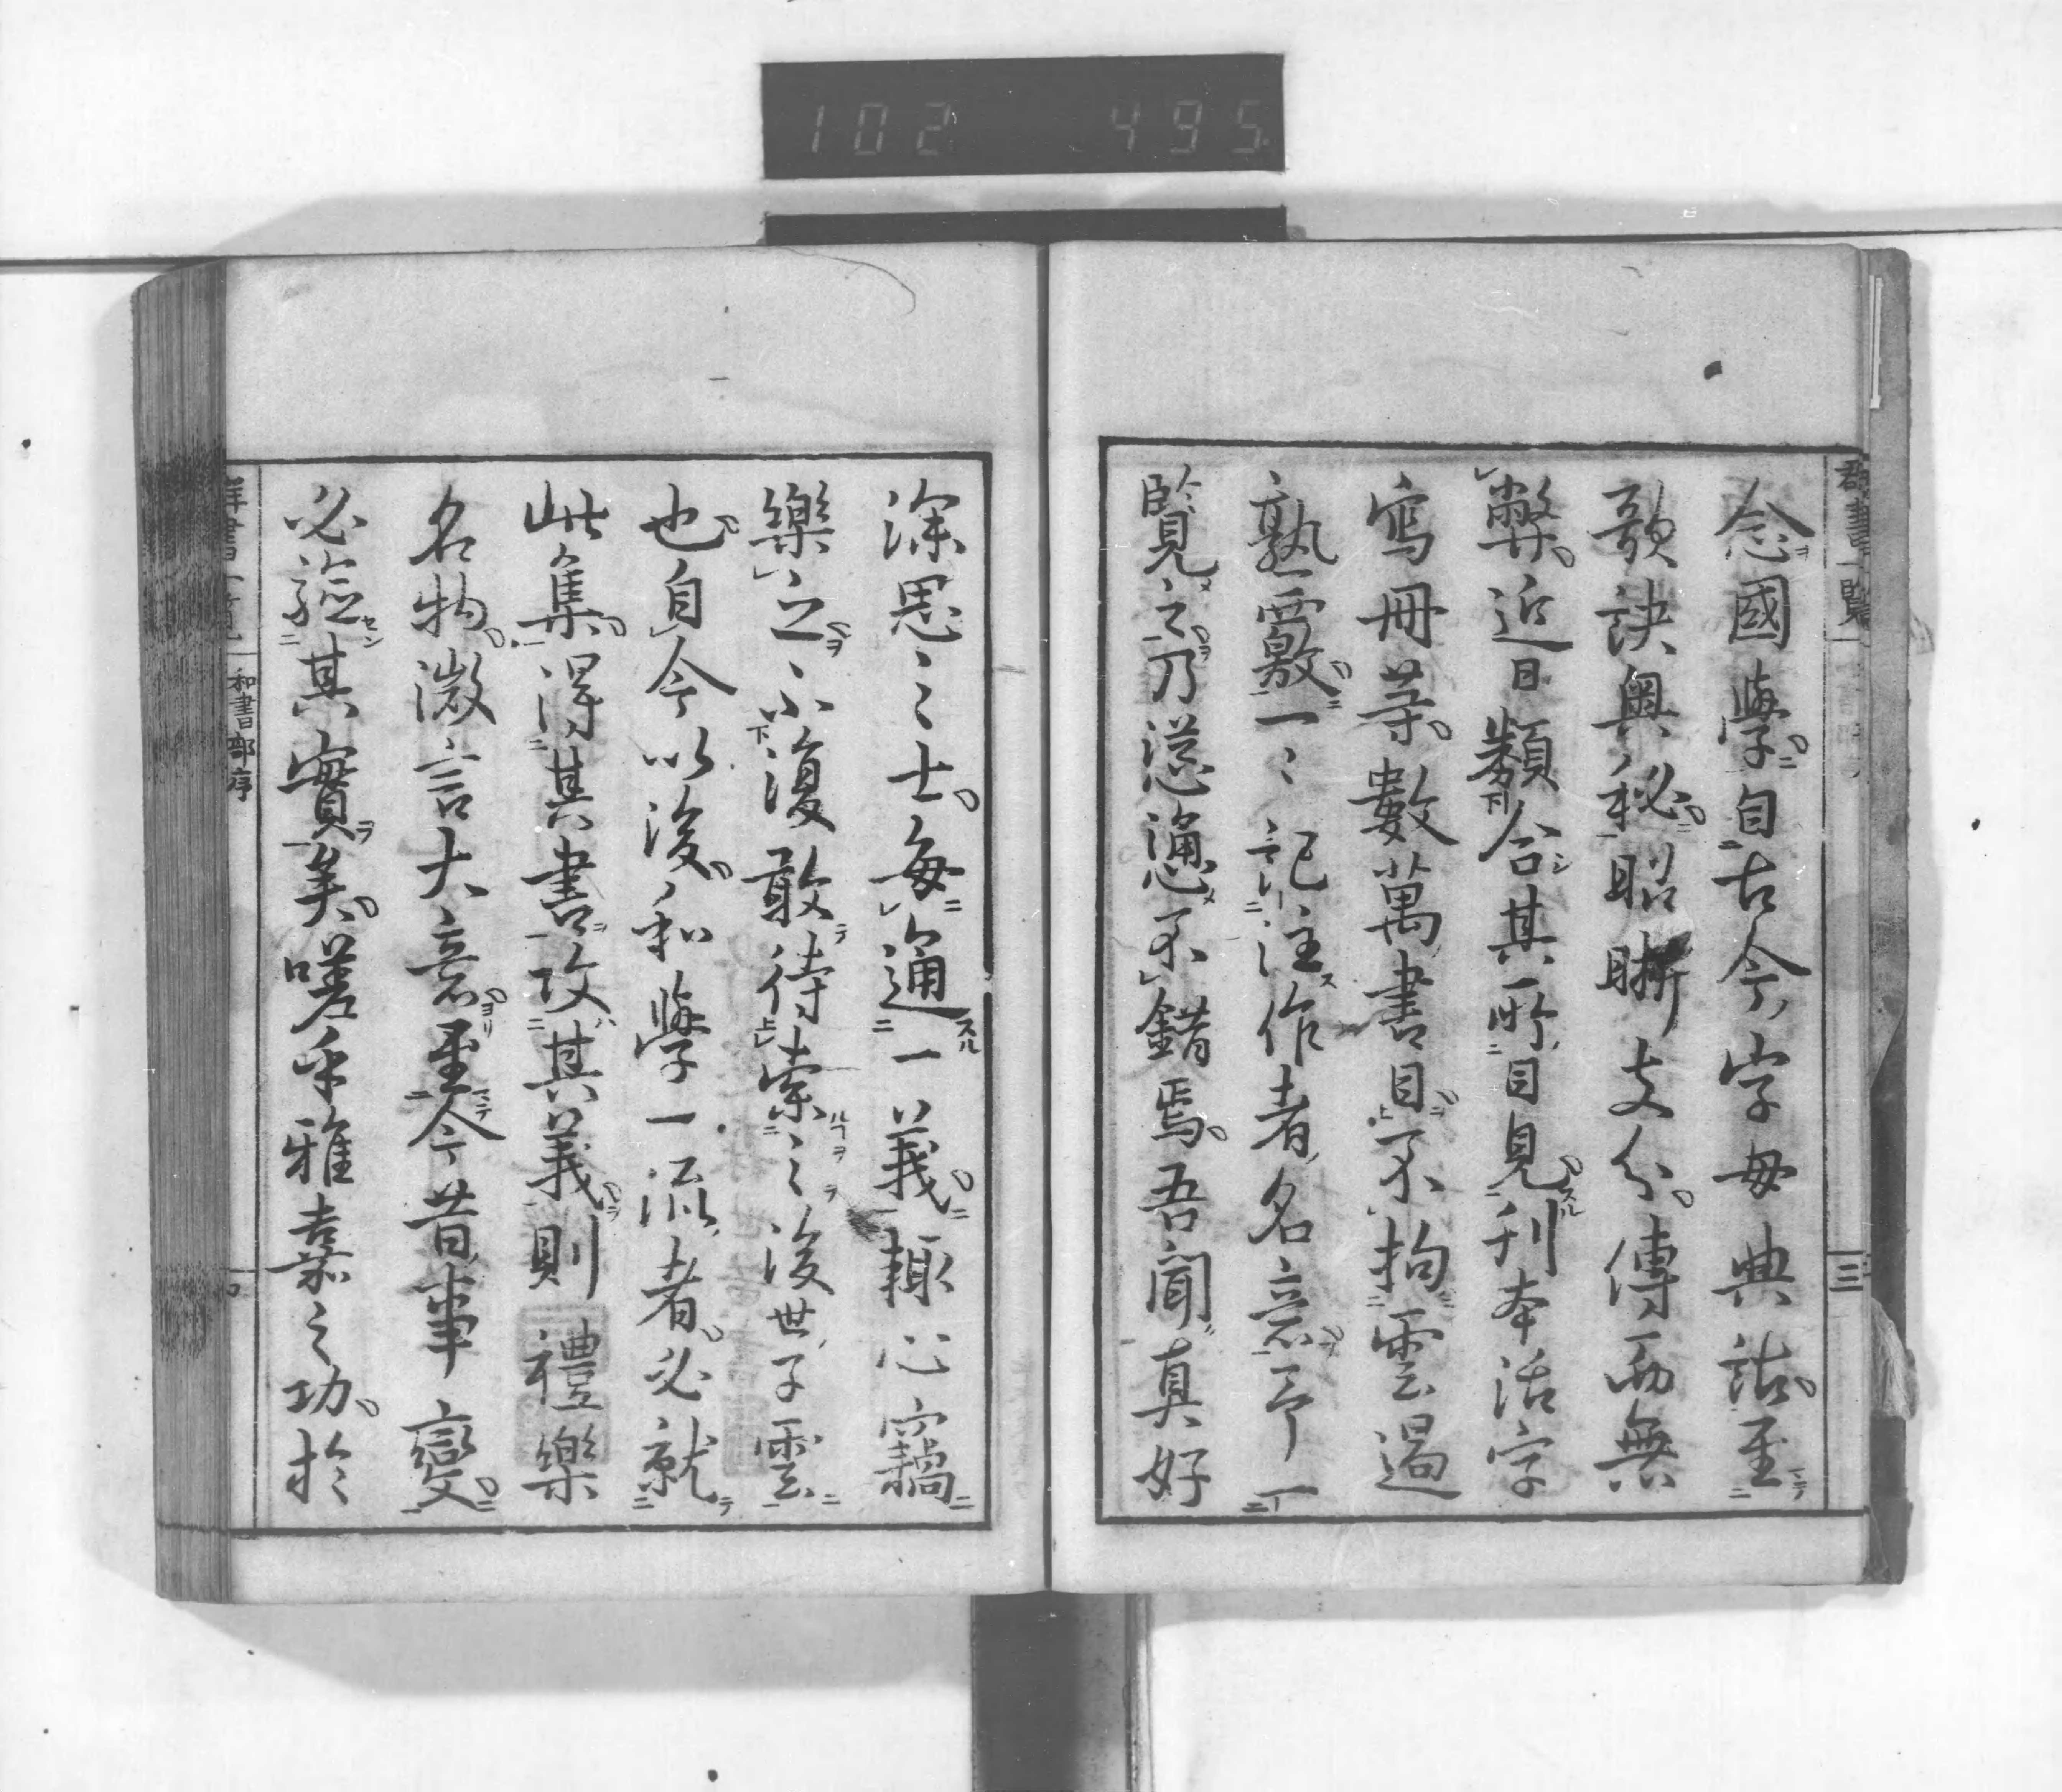 102 495
群書一覽 三
念國學自古今字母典詁至
歌訣奧秘昭晣支分傳而無
弊近日類合其所目見刋本活字
寫冊葉數萬書目不拘雲遏
熟覈一〻記注作者名意予一
覽之乃慫慂不錯焉吾聞真好
深思之士每通一義輙心竊
樂之〻不復敢待索之後世子雲
也自今以後和學一流者必就
此集得其書攷其義則禮樂
名物微言大意至今昔事變
必證其實矣嗟乎雅嘉之功於
群書一覽 和書部序